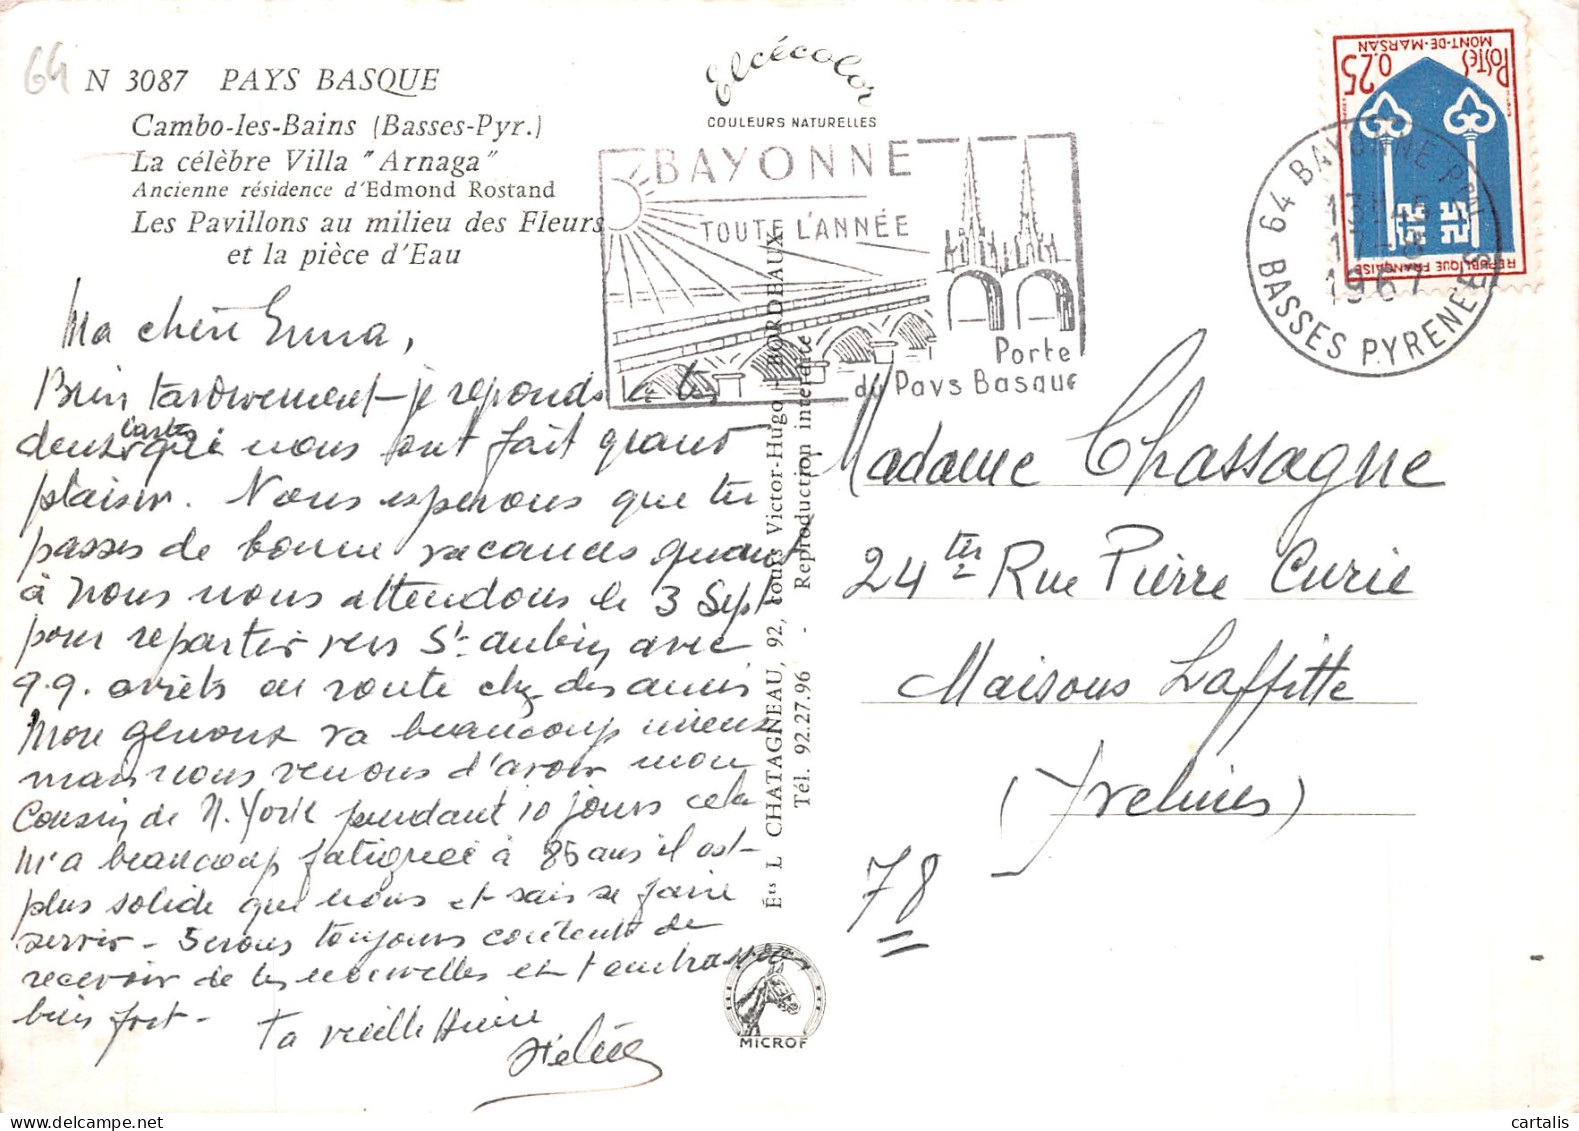 64
N 3087 PAYS BASQUE
Cambo-les-Bains (Basses-Pyr.)
La célèbre Villa "Arnaga"
Ancienne résidence d'Edmond Rostand
Les Pavillons au milieu des Fleurs
et la pièce d'Eau
Elcécolor
COULEURS NATURELLES
BAYONNE
TOUTE L'ANNÉE
Porte
du Pays Basque
64 BAYONNE PPAL
13H45
17-8
1967
BASSES PYRENEES
POSTES 0,25
MONT-DE-MARSAN
REPUBLIQUE FRANÇAISE
Ma chère Emma,
Bien tardivement je réponds à tes
deux cartes qui nous ont fait grand
plaisir. Nous esperons que tu
passes de bonne vacances quant
à nous nous attendons le 3 Sept
pour repartir vers St-aubin avec
q.q. arrêts en route chez des amis
Mon genoux va beaucoup mieux
mais nous venons d'avoir mon
Cousin de N. York pendant 10 jours cela
m'a beaucoup fatiguée à 85 ans il est
plus solide que nous et sais se faire
servir - Serons toujours contents de
recevoir de tes nouvelles et t'embrassons
bien fort -
Ta vieille Amie
Hélène
Éts L. CHATAGNEAU, 92, cours Victor-Hugo - BORDEAUX
Tél. 92.27.96 - Reproduction interdite
MICROF
Madame Chassagne
24 ter Rue Pierre Curie
Maisons Laffitte
(Yvelines)
78
cartalis.com